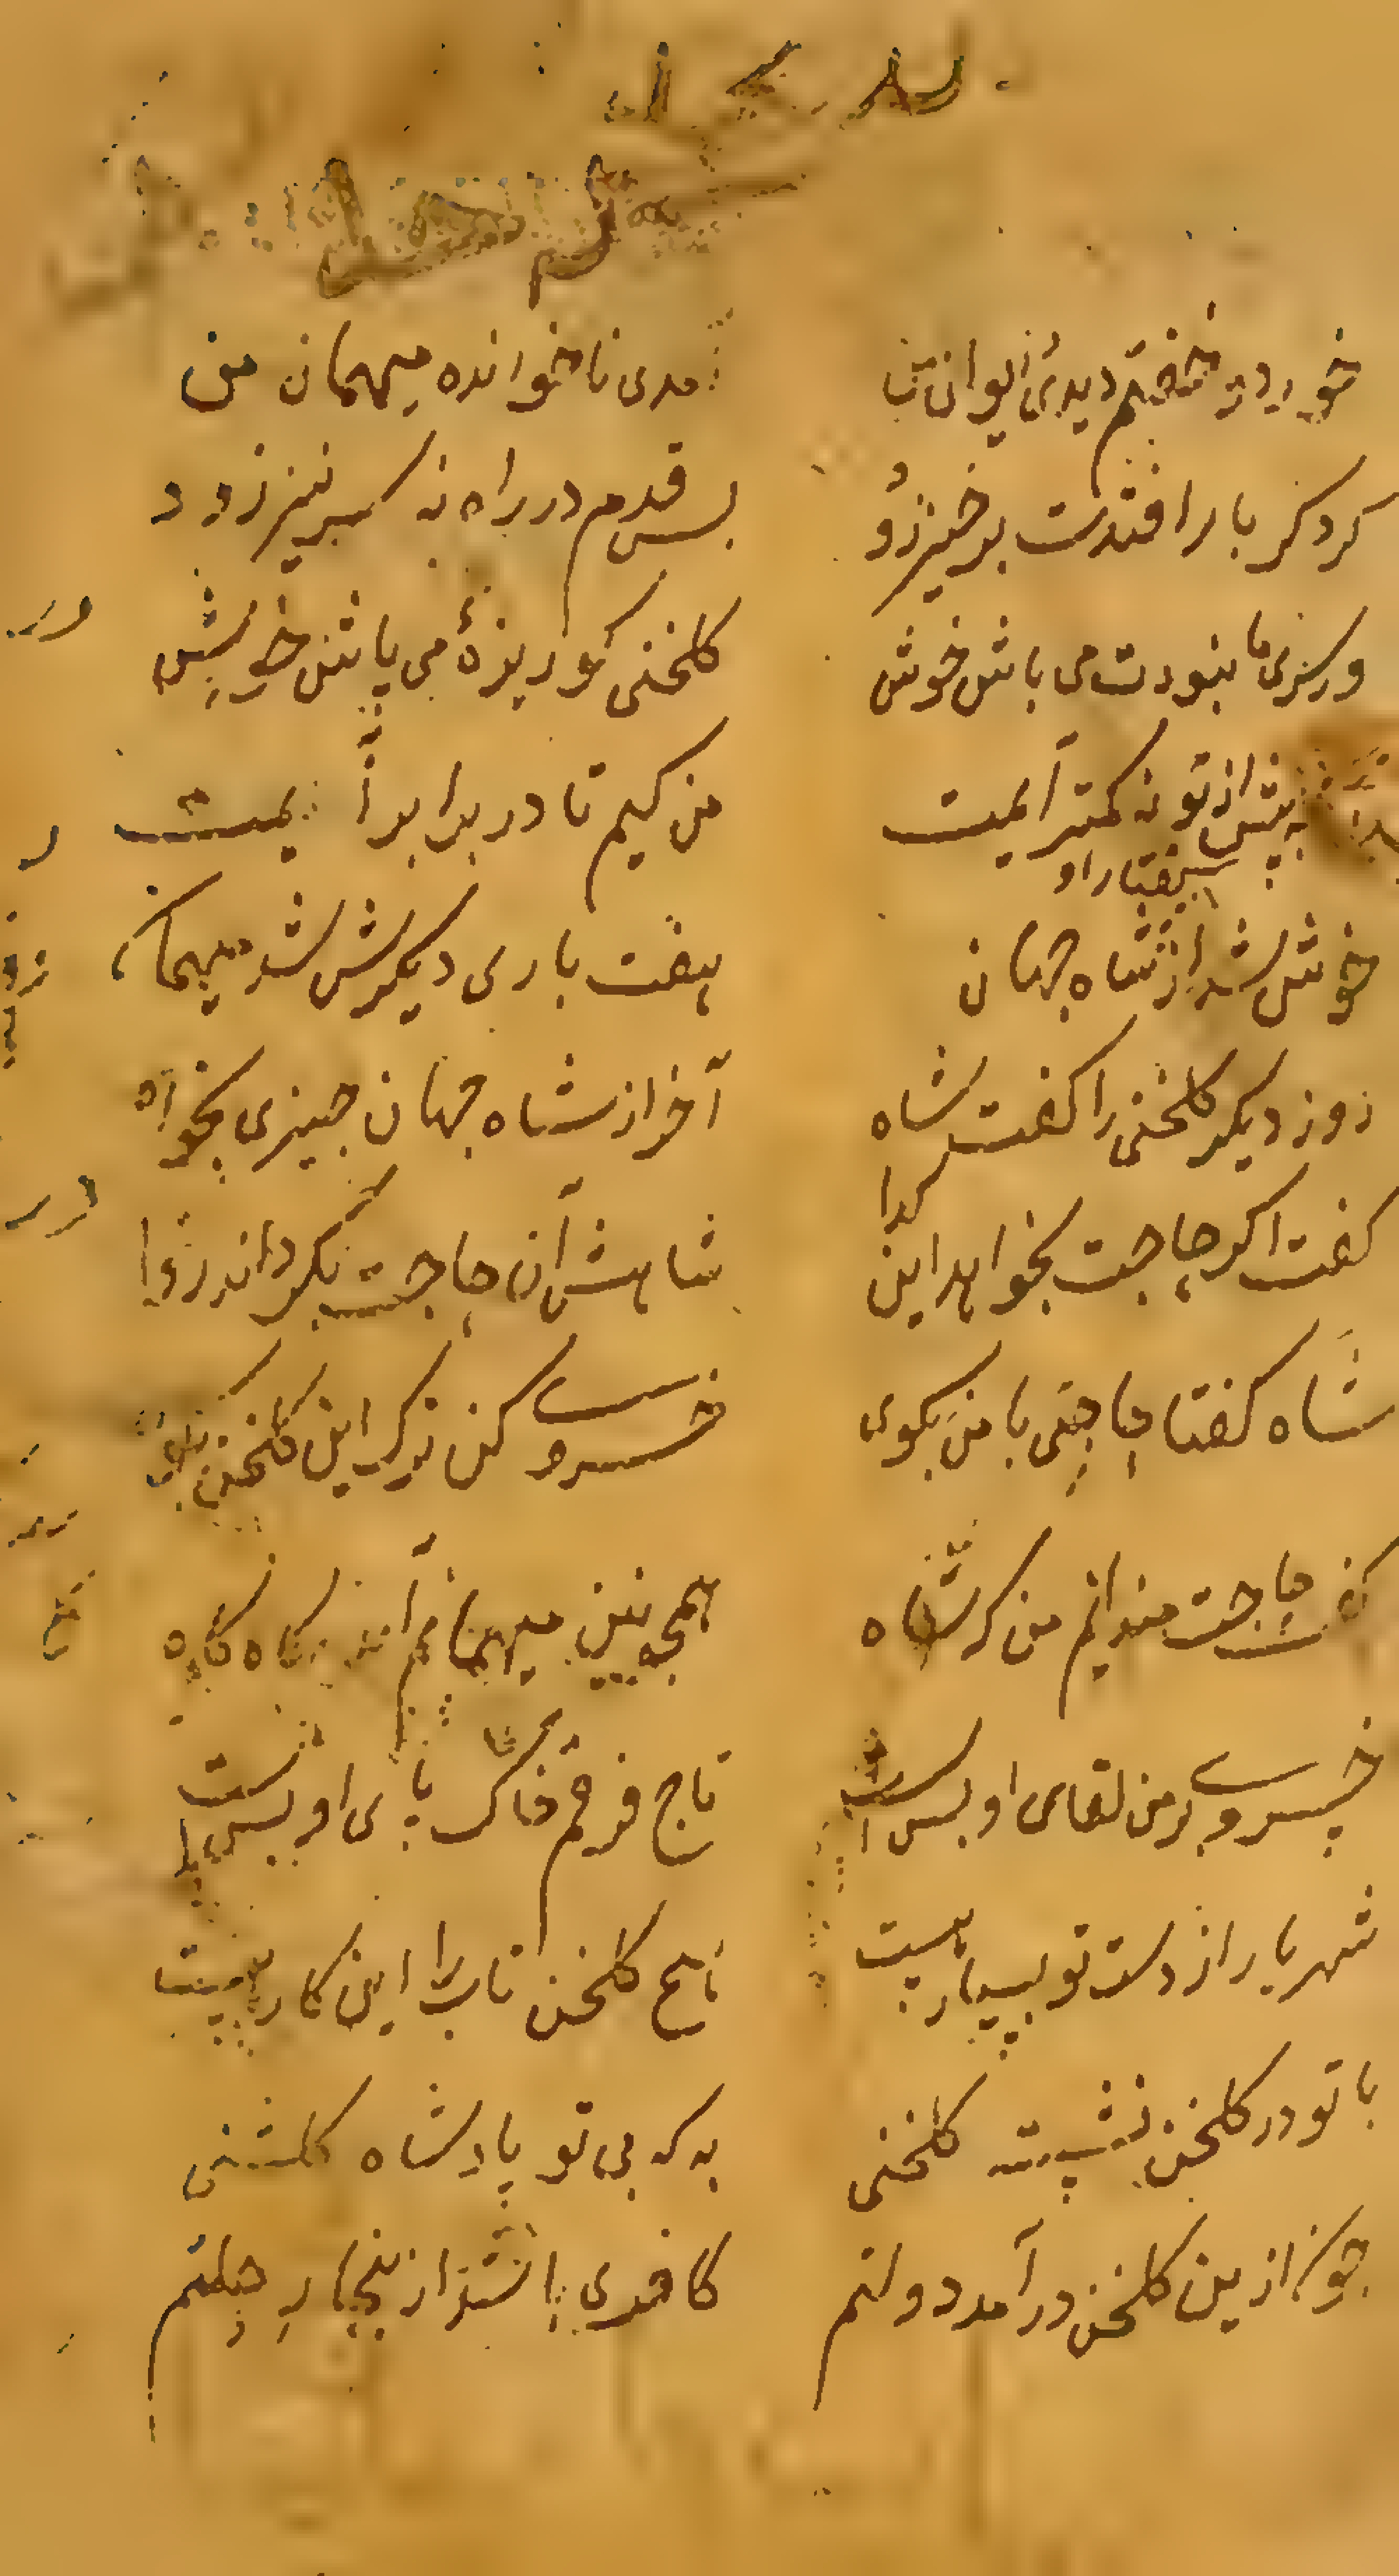 خورد و خفتم دیدی ایوان من آمدی ناخوانده میهمان من
کر دکر بار افتدت برخیز زود بس قدم در راه نه سر نیز زود
ور سر ما نبودت می باش خوش کلخنی کو ریزهٔ می پاش خویش
پیش از تو نه کمتر آیمت من کیم تا در برابر آیمت
خوش شد از کفتار او شاه جهان هفت باری دیکرش شد میهمان
روز دیکر کلخنی را کفت شاه آخر از شاه جهان چیزی بخواه
کفت اکر حاجت بخواهد این کدا شاهش آن حاجت بکرداند روا
شاه کفتا حاجتی با من بکوی خسروی کن ترک این کلخن بکوی
کفت حاجتمندانم من کر شاه همچنین میهمانم آید کاه کاه
خسروی بر من لقای او بس است تاج فرقم خاک پای او بس است
شهریار از دست تو بسیار هست هیچ کلخن تاب را این کار نیست
با تو در کلخن نشسته کلخنی به که بی تو پادشاه کلشنی
چون ازین کلخن درآمد دولتم کافری باشد از اینجا رحلتم